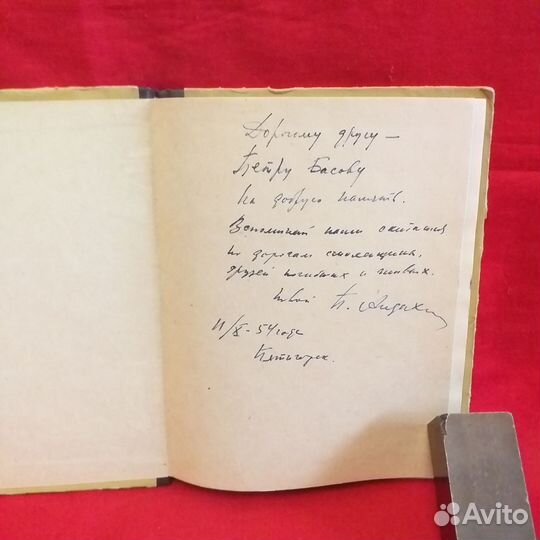 Дорогому другу —
Петру Басову
на добрую память.
Вспоминай наши скитания
по дорогам смоленщины,
друзей погибших и живых.
твой П.
11/X - 54 года
Пятигорск.
Avito